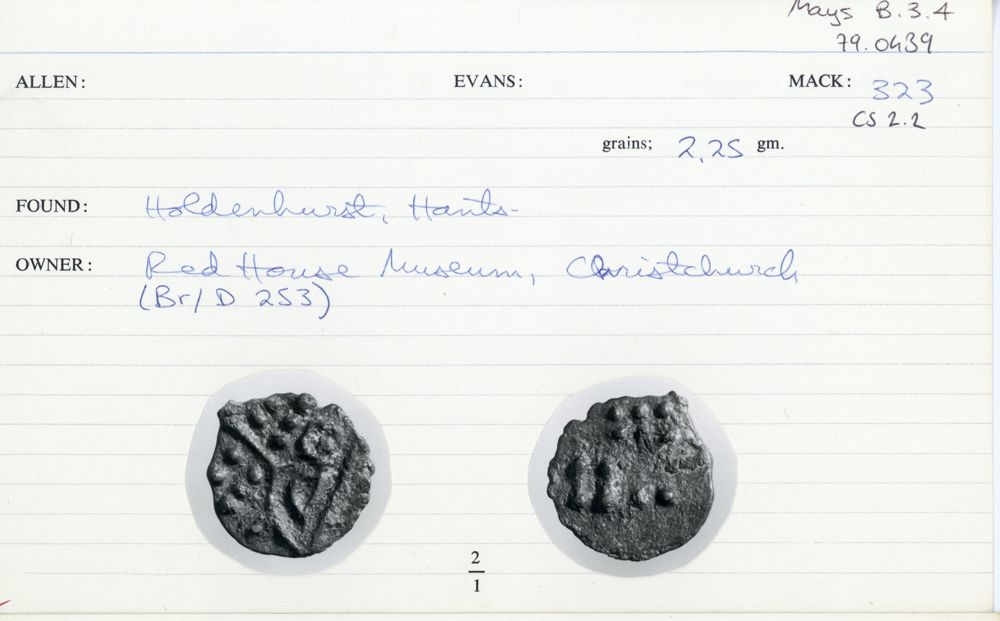 Mays B.3.4
79.0439
ALLEN: EVANS: MACK: 323
CS 2.2
grains; 2.25 gm.
FOUND: Holdenhurst, Hants.
OWNER: Red House Museum, Christchurch
(Br/D 253)
2
1